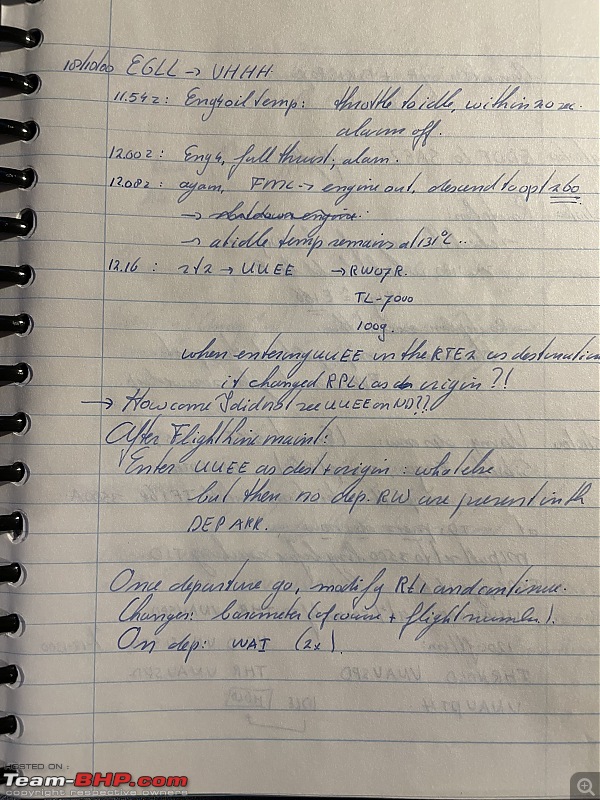 10/10/00 EGLL → VHHH
11.54z: Eng 4 oil temp: throttle to idle, within 20 sec.
alarm off.
12.00z: Eng 4, full thrust; alarm.
12.08z: again, FMC → engine out, descend to opt 260
→ shutdown engine
→ at idle temp remains at 131°C..
12.16: → UUEE → RW07R.
TL-7000
100g.
when entering UUEE in the RTE2 as destination
it changed RPLL as origin?!
→ How come I did not see UUEE on ND??
After Flight line maint:
Enter UUEE as dest + origin: what else
but then no dep. RW are present in th
DEP ARR.
Once departure go, modify Rt 1 and continue.
Changes: barometer (of course + flight number).
On dep: WAI (2x).
HOSTED ON :
Team-BHP.com
copyright respective owners